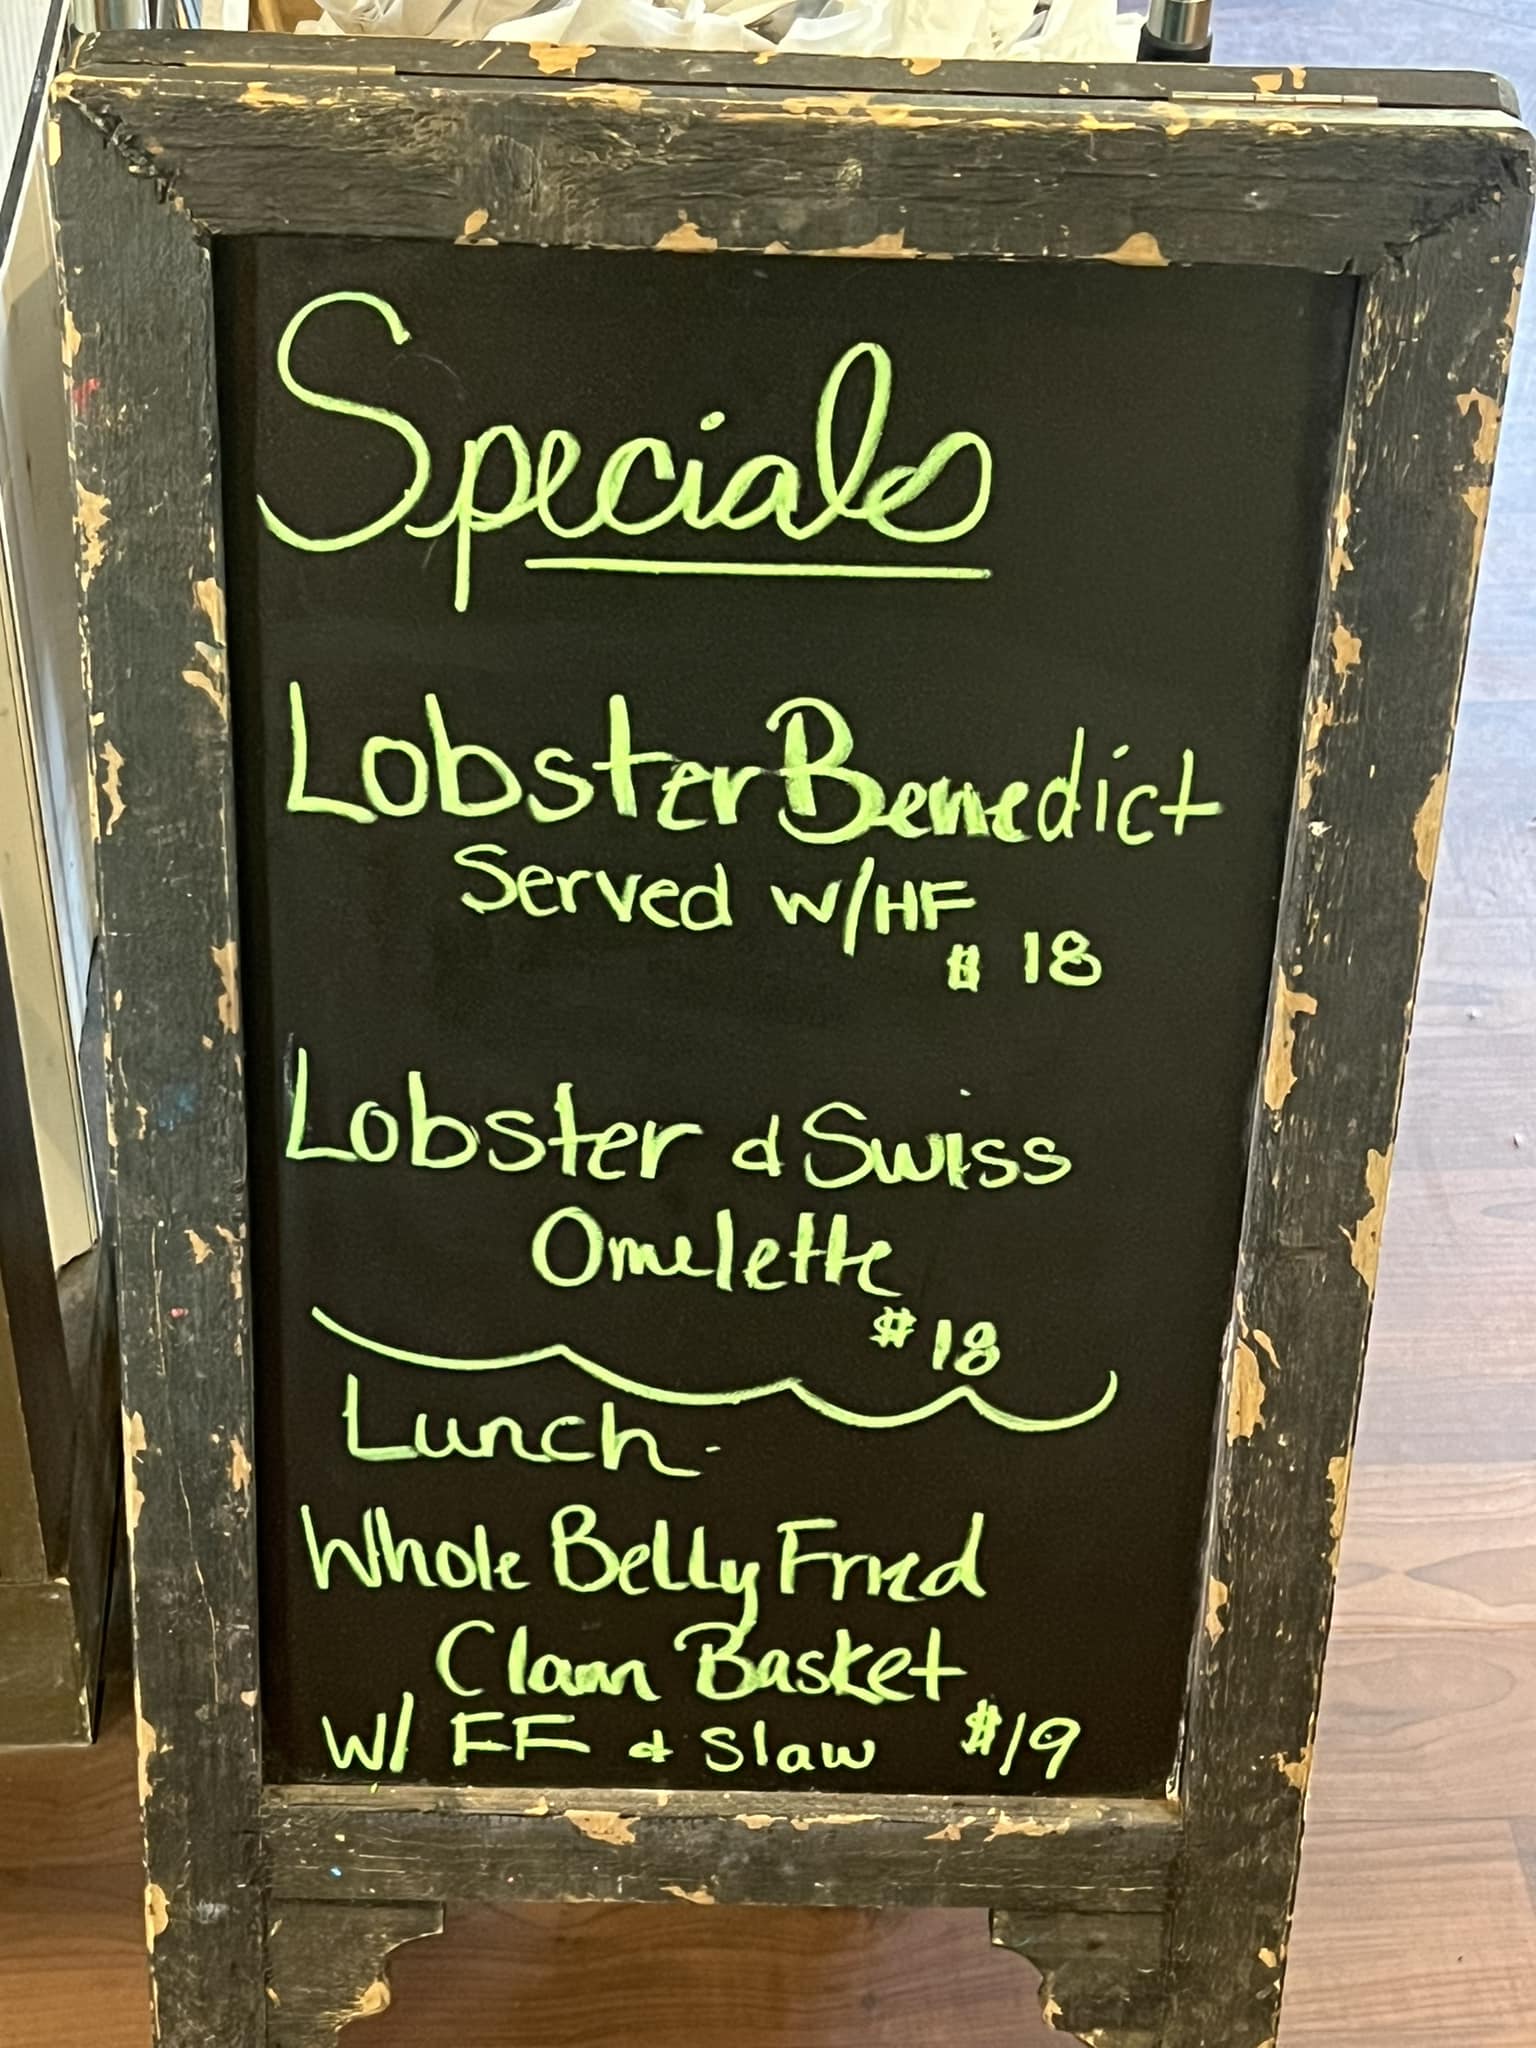 Specials
Lobster Benedict
Served W/HF
$ 18
Lobster & Swiss
Omelette
$18
Lunch
Whole Belly Fried
Clam Basket
W/ FF & Slaw $19